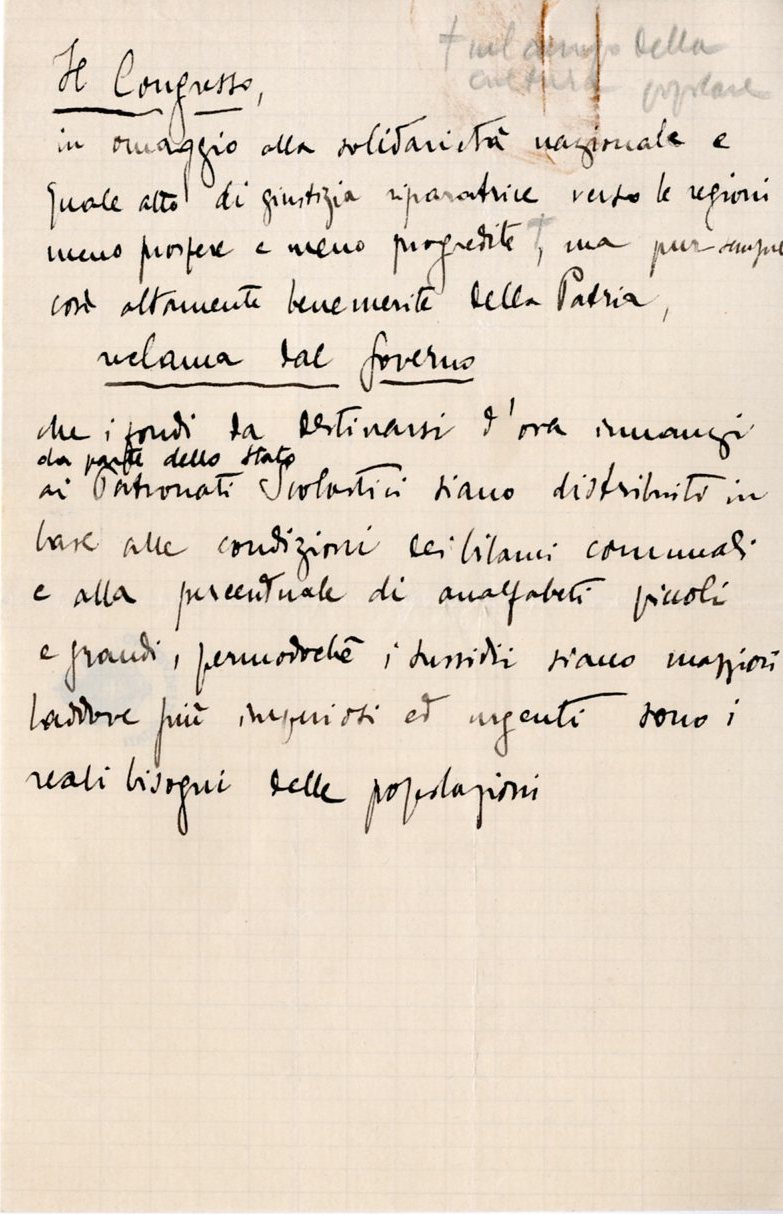 † nel campo della
cultura popolare
Il Congresso,
in omaggio alla solidarietà nazionale e
quale atto di giustizia riparatrice verso le regioni
meno prospere e meno progredite †, ma pur sempre
così altamente benemerite della Patria,
reclama dal Governo
che i fondi da destinarsi d'ora innanzi
da parte dello Stato
ai Patronati Scolastici siano distribuiti in
base alle condizioni dei bilanci comunali
e alla percentuale di analfabeti piccoli
e grandi, permodochè i sussidii siano maggiori
laddove più imperiosi ed urgenti sono i
reali bisogni delle popolazioni